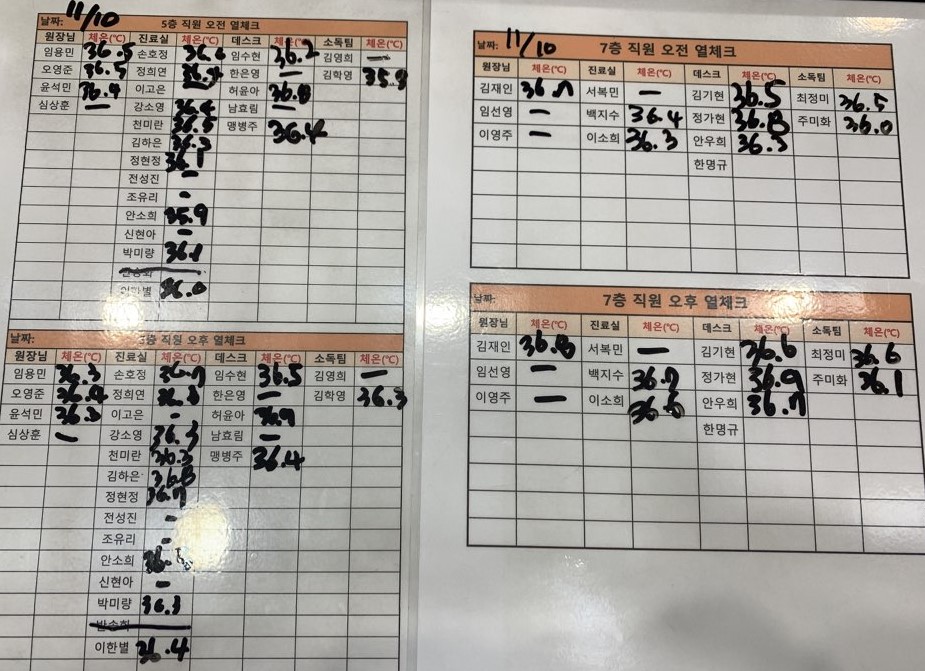 날짜: 11/10 5층 직원 오전 열체크
원장님 체온(℃) 진료실 체온(℃) 데스크 체온(℃) 소독팀 체온(℃)
임용민 36.5 손호정 36.6 임수현 36.2 김영희 —
오영준 36.5 정희연 한은영 — 김학영 35.9
윤석민 36.9 이고은 — 허윤아 36.8
심상훈 — 강소영 36.4 남효림 —
천미란 36.5 맹병주 36.4
김하은 36.3
정현정 36.1
전성진 —
조유리 -
안소희 35.9
신현아 -
박미량 36.1
이한별 36.0
날짜: 5층 직원 오후 열체크
원장님 체온(℃) 진료실 체온(℃) 데스크 체온(℃) 소독팀 체온(℃)
임용민 36.3 손호정 36.7 임수현 36.5 김영희 —
오영준 정희연 36.8 한은영 — 김학영 36.3
윤석민 36.3 이고은 - 허윤아 36.9
심상훈 — 강소영 36.3 남효림 —
천미란 36.3 맹병주 36.4
김하은 36.8
정현정 36.7
전성진 -
조유리 -
안소희
신현아 -
박미량 36.3
반송희
이한별 36.4
날짜: 11/10 7층 직원 오전 열체크
원장님 체온(℃) 진료실 체온(℃) 데스크 체온(℃) 소독팀 체온(℃)
김재인 36.7 서복민 — 김기현 36.5 최정미 36.5
임선영 — 백지수 36.4 정가현 36.8 주미화 36.0
이영주 — 이소희 36.3 안우희 36.5
한명규
날짜: 7층 직원 오후 열체크
원장님 체온(℃) 진료실 체온(℃) 데스크 체온(℃) 소독팀 체온(℃)
김재인 36.8 서복민 — 김기현 36.6 최정미 36.6
임선영 — 백지수 36.7 정가현 36.9 주미화 36.1
이영주 — 이소희 안우희 36.7
한명규